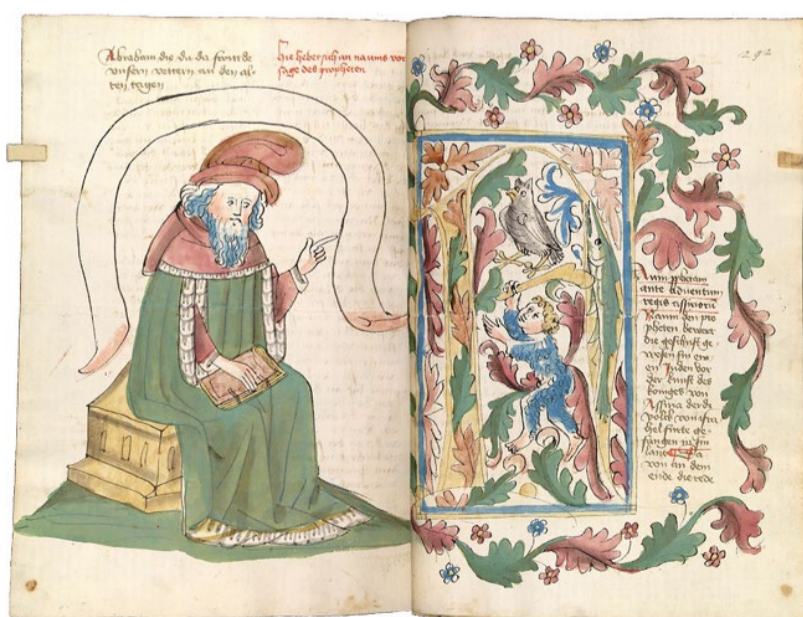 Abraham die du da swurde
vnsern vettern an den al-
ten tagen
Hie hebet sich an naums vor
sage des propheten
292
Naum prophetam
ante adventum
regis assiriorum
Naum den pro
pheten bewert
die geschrift ge-
wesen sin
en Juden vor
der kunft des
koniges von
Assiria der dz
volck von isra
hel furte ge-
fangen in sin
lant
von an dem
ende die rede